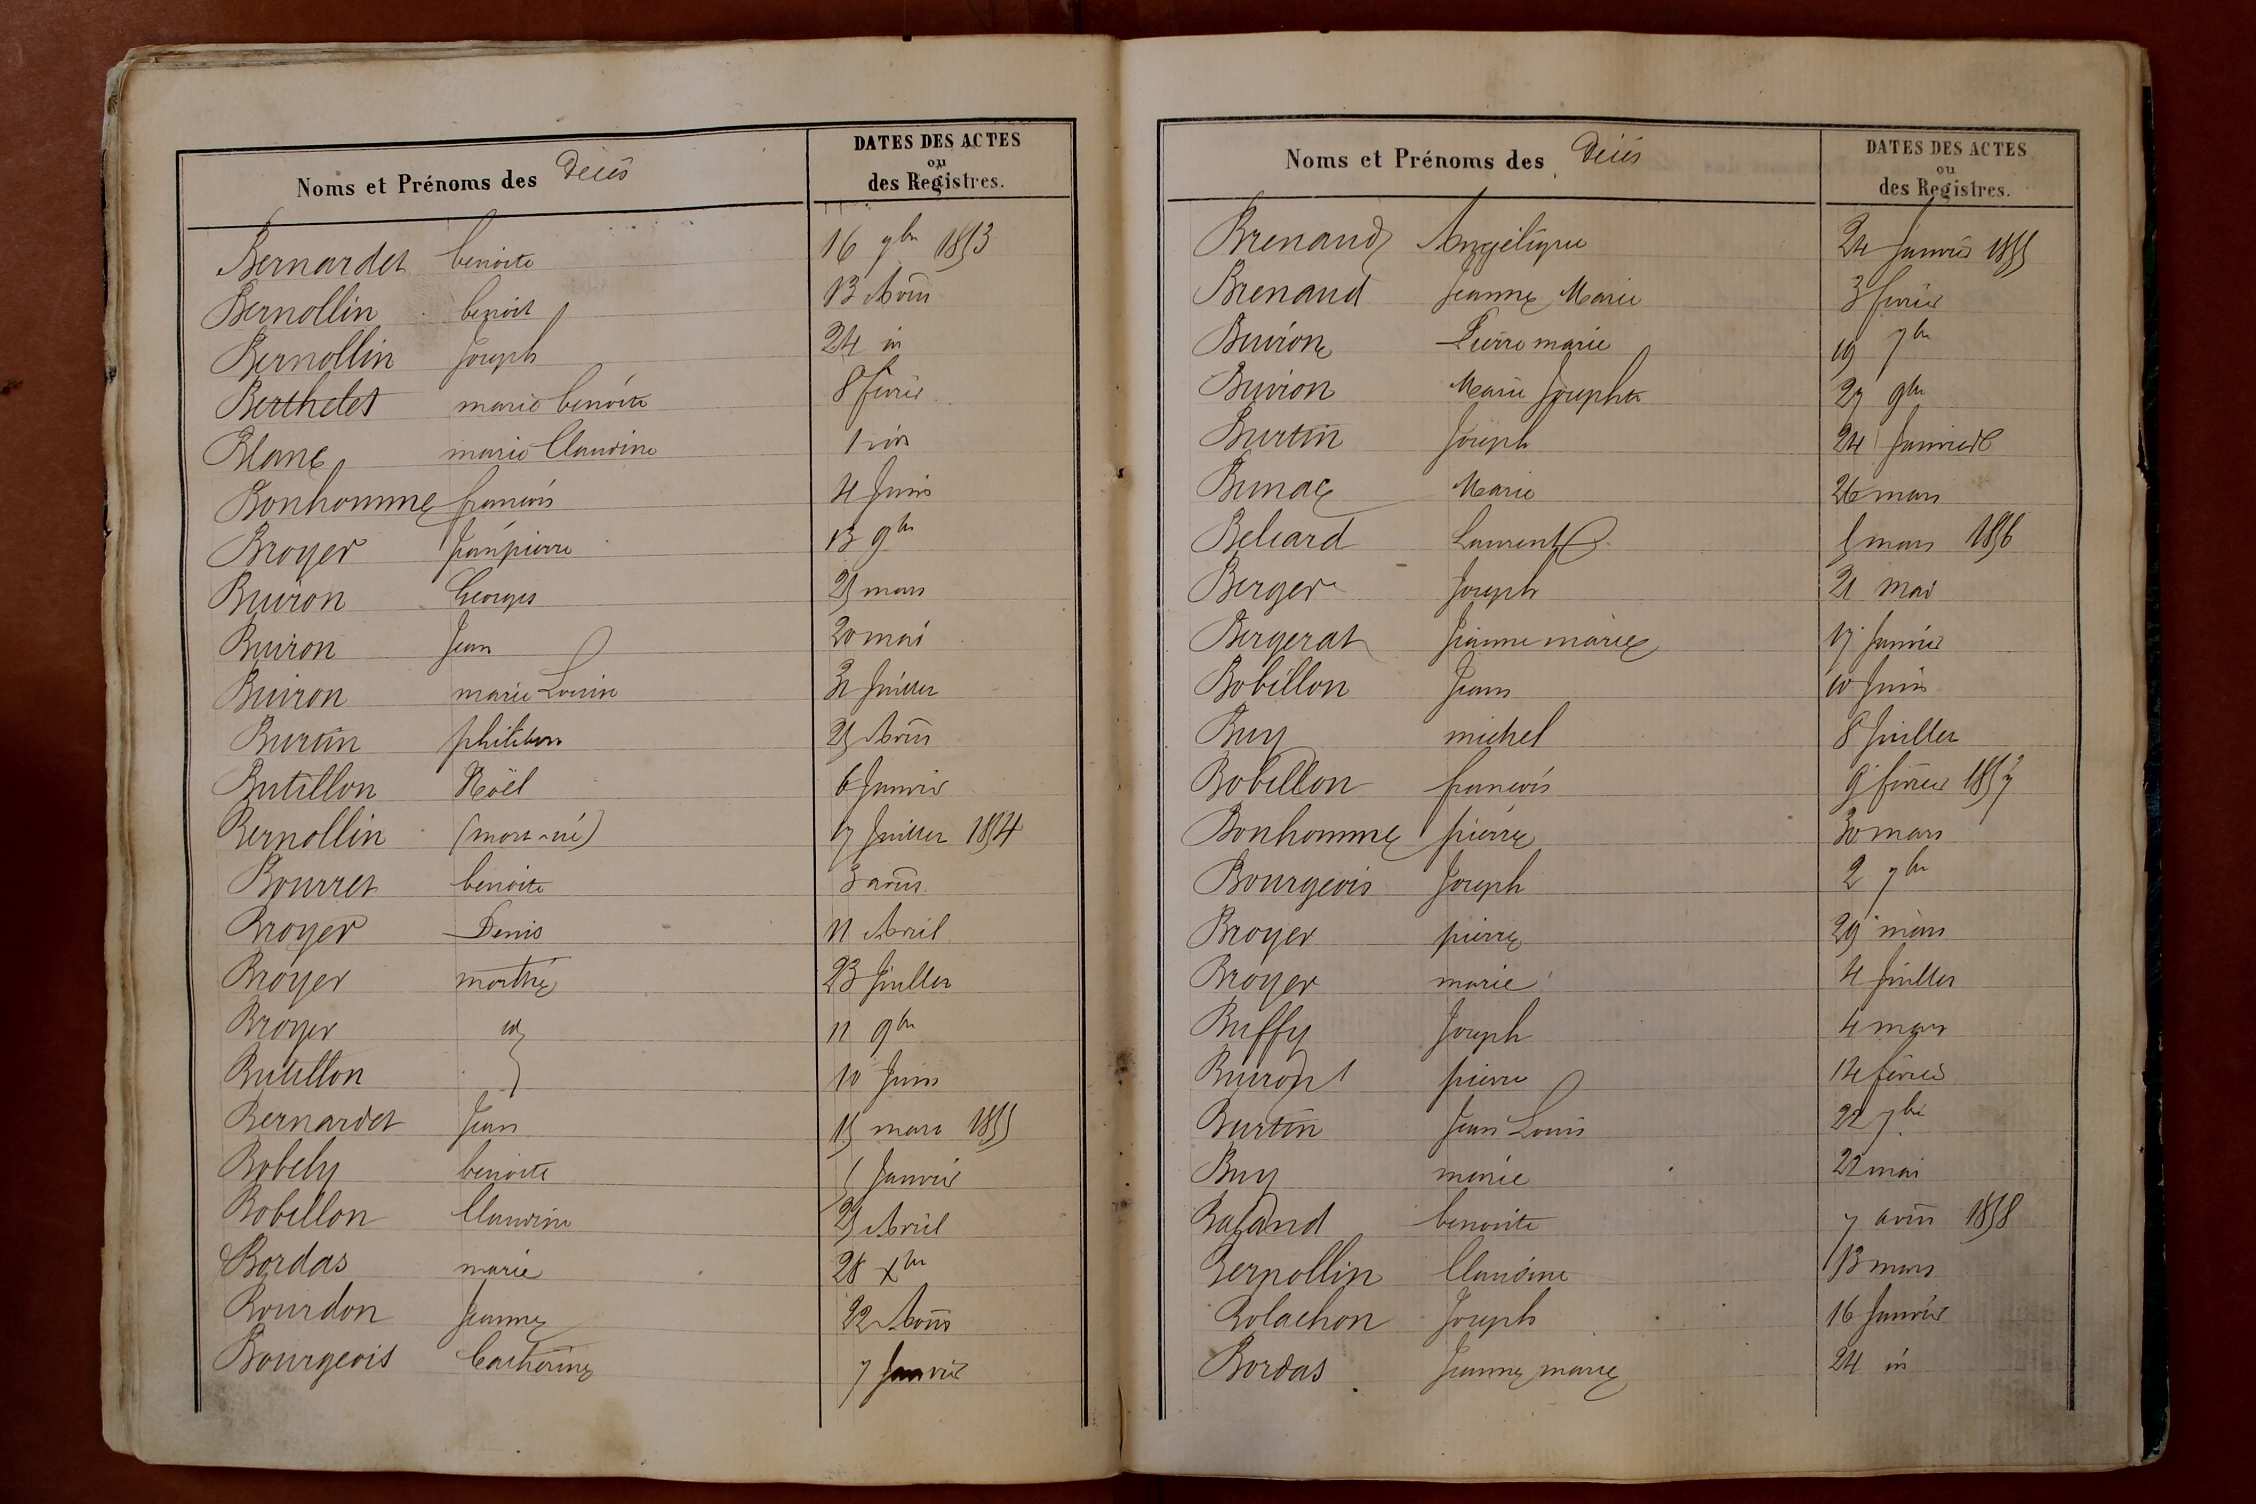 Noms et Prénoms des Décès
DATES DES ACTES
ou
des Registres.
Bernardet benoite 16 9bre 1853
Bernollin benoit 13 Août
Bernollin Joseph 24 id
Berthelet marie benoite 8 février
Blanc marie Claudine 1 id
Bonhomme françois 4 Juin
Broyer Jean pierre 13 9bre
Buiron Georges 25 mars
Buiron Jean 20 mai
Buiron marie Louise 31 Juillet
Burtin philibert 25 Août
Butillon Noël 6 Janvier
Bernollin (mort-né) 17 Juillet 1854
Bourret benoite 3 août
Broyer Denis 11 Avril
Broyer mort né 23 Juillet
Broyer id 11 9bre
Butillon 10 Juin
Bernardet Jean 15 mars 1855
Bobely benoite 5 Janvier
Bobillon Claudine 25 Avril
Bordas marie 28 Xbre
Bourdon Jeanne 22 Août
Bourgeois Catherine 7 Janvier
Noms et Prénoms des Décès
DATES DES ACTES
ou
des Registres.
Brenaud Angélique 24 Janvier 1855
Brenaud Jeanne Marie 3 février
Buiron Pierre marie 19 7bre
Buiron Marie Josephte 27 9bre
Burtin Joseph 24 Janvier
Marie 26 mars
Beliard Laurent 5 mars 1856
Berger Joseph 21 Mai
Bergerat Jeanne marie 17 Janvier
Bobillon Jean 10 Juin
Buy michel 8 Juillet
Bobillon françois 9 février 1857
Bonhomme pierre 30 mars
Bourgeois Joseph 2 7bre
Broyer pierre 29 mars
Broyer marie 4 Juillet
Buffy Joseph 4 mars
Buiron pierre 14 février
Burtin Jean Louis 22 7bre
Buy marie 22 mai
Baland benoite 7 août 1858
Bernollin Claudine 13 mars
Bolachon Joseph 16 Janvier
Bordas Jeanne marie 24 id